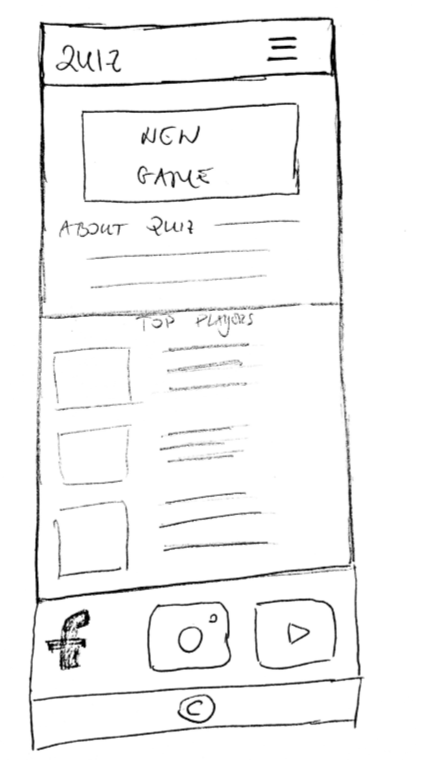 QUIZ
NEW
GAME
ABOUT QUIZ
TOP PLAYERS
f
©